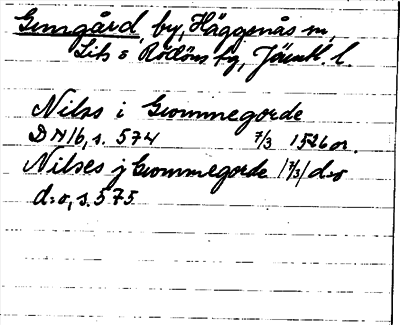 Gumgård, by, Häggenås sn,
Lits o Rödöns tg, Jämtl. l.
Nilss i Gwmmegorde
DN 16, s. 574 7/3 1526 or.
Nilses j Gwmmegorde (7/3) d:o
d:o, s. 575